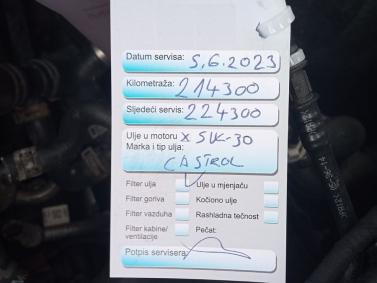 Datum servisa: 5.6.2023
Kilometraža: 214300
Sljedeći servis: 224300
Ulje u motoru x 5W-30
Marka i tip ulja:
CASTROL
Filter ulja Ulje u mjenjaču
Filter goriva Kočiono ulje
Filter vazduha Rashladna tečnost
Filter kabine/ Pečat:
ventilacije
Potpis servisera: